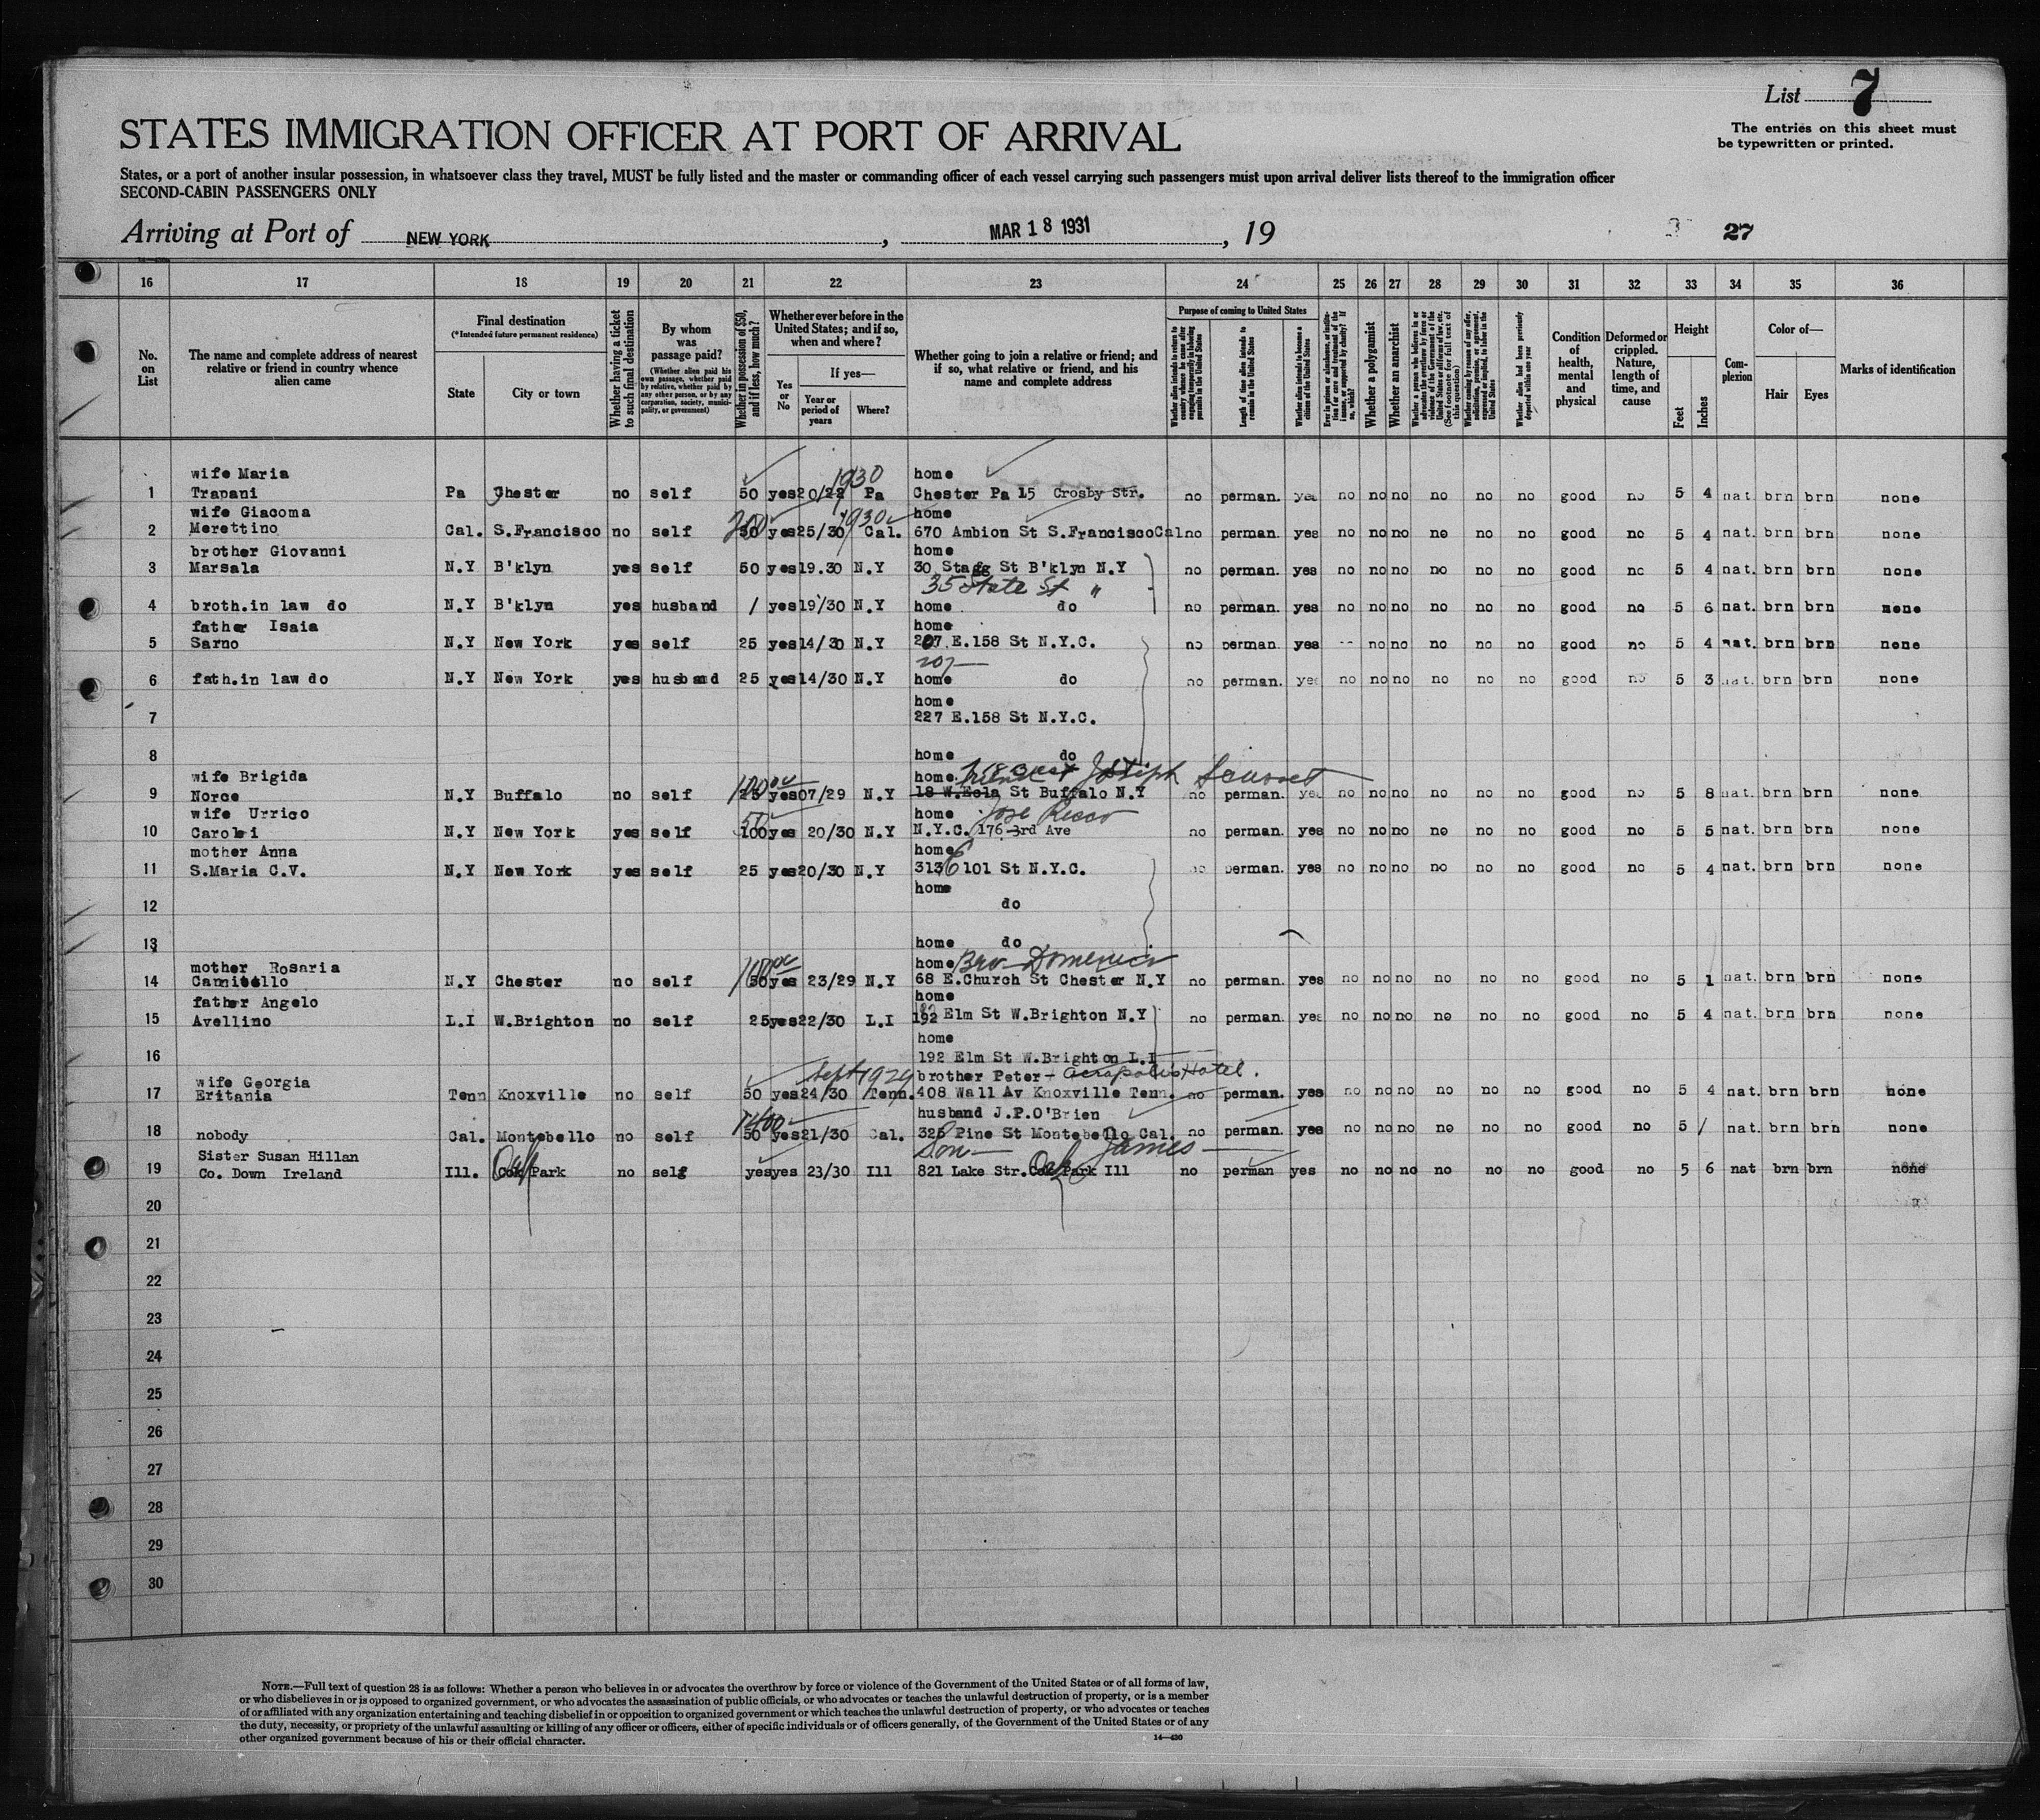 List 7
The entries on this sheet must
be typewritten or printed.
STATES IMMIGRATION OFFICER AT PORT OF ARRIVAL
States, or a port of another insular possession, in whatsoever class they travel, MUST be fully listed and the master or commanding officer of each vessel carrying such passengers must upon arrival deliver lists thereof to the immigration officer
SECOND-CABIN PASSENGERS ONLY
Arriving at Port of NEW YORK, MAR 18 1931, 19 27
16 17 18 19 20 21 22 23 24 25 26 27 28 29 30 31 32 33 34 35 36
No. on List
The name and complete address of nearest relative or friend in country whence alien came
Final destination
(*Intended future permanent residence)
State
City or town
Whether having a ticket to such final destination
By whom was passage paid?
(Whether alien paid his own passage, whether paid by relative, whether paid by any other person, or by any corporation, society, municipality, or government)
Whether in possession of $50, and if less, how much?
Whether ever before in the United States; and if so, when and where?
Yes or No
If yes—
Year or period of years
Where?
Whether going to join a relative or friend; and if so, what relative or friend, and his name and complete address
Purpose of coming to United States
Length of time alien intends to remain in the United States
Whether alien intends to become a citizen of the United States
Whether a polygamist
Whether an anarchist
Whether alien had been previously deported within one year
Condition of health, mental and physical
Deformed or crippled. Nature, length of time, and cause
Height
Feet
Inches
Complexion
Color of—
Hair
Eyes
Marks of identification
wife Maria home
1930
1 Trapani Pa Chester no self 50 yes 20/22 Pa Chester Pa 15 Crosby Str. no perman. yes no no no no no no good no 5 4 nat. brn brn none
wife Giacoma home
200 1930
2 Merettino Cal. S.Francisco no self 50 yes 25/30 Cal. 670 Ambion St S.Francisco Cal no perman. yes no no no no no no good no 5 4 nat. brn brn none
brother Giovanni home
3 Marsala N.Y B'klyn yes self 50 yes 19.30 N.Y 30 Stagg St B'klyn N.Y no perman. yes no no no no no no good no 5 4 nat. brn brn none
35 State St "
4 broth.in law do N.Y B'klyn yes husband / yes 19/30 N.Y home do no perman. yes no no no no no no good no 5 6 nat. brn brn none
father Isaia home
5 Sarno N.Y New York yes self 25 yes 14/30 N.Y 207 E.158 St N.Y.C. no perman. yes -- no no no no no good no 5 4 nat. brn brn none
207
6 fath.in law do N.Y New York yes husband 25 yes 14/30 N.Y home do no perman. yes no no no no no no good no 5 3 nat. brn brn none
home
7 227 E.158 St N.Y.C.
8 home do
wife Brigida home Joseph
100
9 Norce N.Y Buffalo no self 25 yes 07/29 N.Y 18 W.Eola St Buffalo N.Y no perman. yes no no no no no no good no 5 8 nat. brn brn none
wife Urrico home Jose Ricco
50
10 Carolei N.Y New York yes self 100 yes 20/30 N.Y N.Y.C. 176-3rd Ave no perman. yes no no no no no no good no 5 5 nat. brn brn none
mother Anna home
11 S.Maria C.V. N.Y New York yes self 25 yes 20/30 N.Y 313 E 101 St N.Y.C. no perman. yes no no no no no no good no 5 4 nat. brn brn none
home
12 do
13 home do
mother Rosaria home Bro Domenico
100
14 N.Y Chester no self 50 yes 23/29 N.Y 68 E.Church St Chester N.Y no perman. yes no no no no no no good no 5 1 nat. brn brn none
father Angelo home
15 Avellino L.I W.Brighton no self 25 yes 22/30 L.I 192 Elm St W.Brighton N.Y no perman. yes no no no no no no good no 5 4 nat. brn brn none
home
16 192 Elm St W.Brighton L.I
wife Georgia Sept 1929 brother Peter - Acropolis Hotel.
17 Eritania Tenn Knoxville no self 50 yes 24/30 Tenn. 408 Wall Av Knoxville Tenn. no perman. yes no no no no no no good no 5 4 nat. brn brn none
husband J.P.O'Brien
1400
18 nobody Cal. Montebello no self 50 yes 21/30 Cal. 325 Pine St Montebello Cal. no perman. yes no no no no no no good no 5 / nat. brn brn none
Sister Susan Hillan Son James
19 Co. Down Ireland Ill. Oak Park no self yes yes 23/30 Ill 821 Lake Str. Oak Park Ill no perman yes no no no no no no good no 5 6 nat brn brn none
20
21
22
23
24
25
26
27
28
29
30
NOTE.—Full text of question 28 is as follows: Whether a person who believes in or advocates the overthrow by force or violence of the Government of the United States or of all forms of law,
or who disbelieves in or is opposed to organized government, or who advocates the assassination of public officials, or who advocates or teaches the unlawful destruction of property, or is a member
of or affiliated with any organization entertaining and teaching disbelief in or opposition to organized government or which teaches the unlawful destruction of property, or who advocates or teaches
the duty, necessity, or propriety of the unlawful assaulting or killing of any officer or officers, either of specific individuals or of officers generally, of the Government of the United States or of any
other organized government because of his or their official character.
14—430